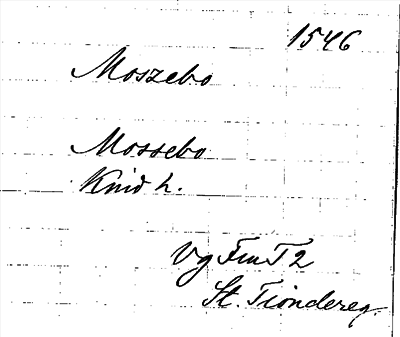 1546
Moszebo
Mossebo
Kind h.
Vg Fm T 2
St. Tiondereg.